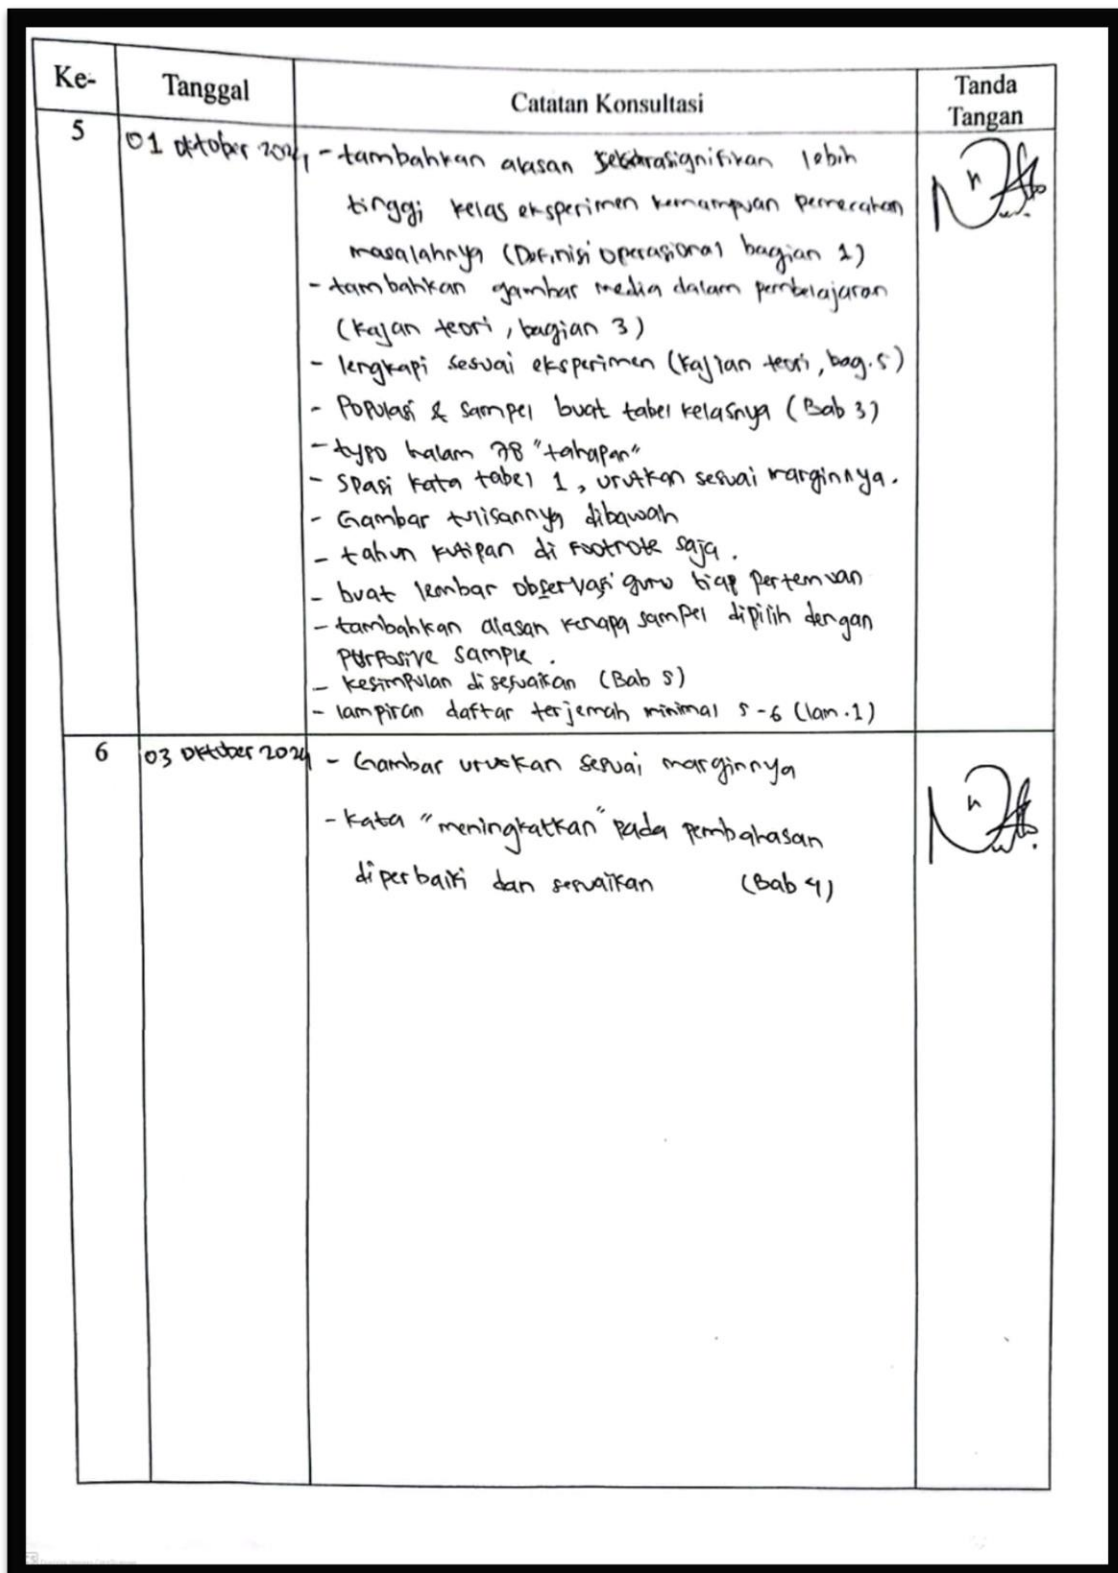 Ke-
Tanggal
Catatan Konsultasi
Tanda
Tangan
5
01 Oktober 2024
- tambahkan alasan secara signifikan lebih
tinggi kelas eksperimen kemampuan pemecahan
masalahnya (Definisi operasional bagian 1)
- tambahkan gambar media dalam pembelajaran
(Kajan teori, bagian 3)
- lengkapi sesuai eksperimen (Kajian teori, bag. 5)
- Populasi & sampel buat tabel kelasnya (Bab 3)
- typo halam 78 "tahapan"
- Spasi kata tabel 1, urutkan sesuai marginnya.
- Gambar tulisannya dibawah
- tahun kutipan di Footnote saja.
- buat lembar observasi guru tiap pertemuan
- tambahkan alasan kenapa sampel dipilih dengan
Purposive sample.
- Kesimpulan disesuaikan (Bab 5)
- lampiran daftar terjemah minimal 5-6 (lam. 1)
6
03 Oktober 2024
- Gambar urutkan sesuai marginnya
- Kata "meningkatkan" pada pembahasan
diperbaiki dan sesuaikan (Bab 4)